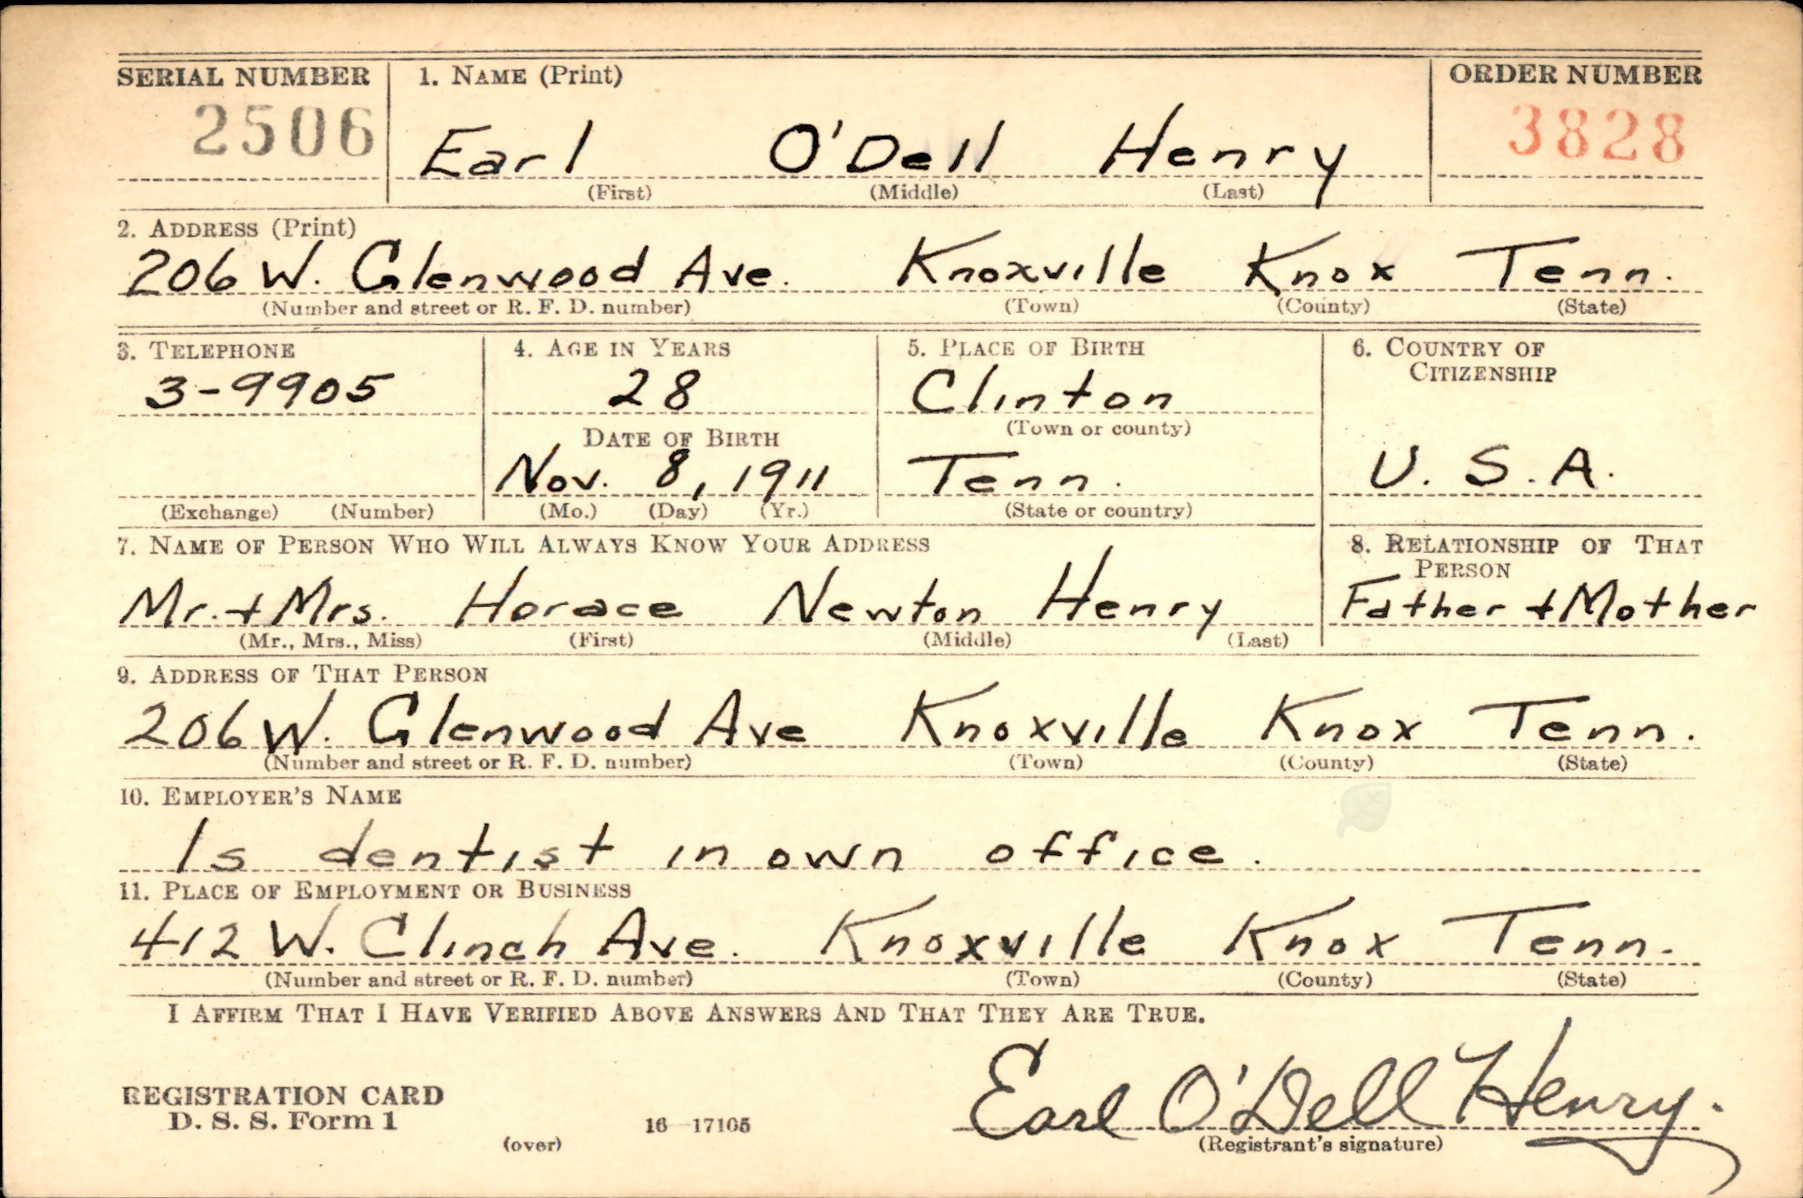 SERIAL NUMBER 1. NAME (Print) ORDER NUMBER
2506 Earl O'Dell Henry 3828
(First) (Middle) (Last)
2. ADDRESS (Print)
206 W. Glenwood Ave. Knoxville Knox Tenn.
(Number and street or R. F. D. number) (Town) (County) (State)
3. TELEPHONE 4. AGE IN YEARS 5. PLACE OF BIRTH 6. COUNTRY OF
CITIZENSHIP
3-9905 28 Clinton
(Town or county)
DATE OF BIRTH
Nov. 8, 1911 Tenn. U. S. A.
(Exchange) (Number) (Mo.) (Day) (Yr.) (State or country)
7. NAME OF PERSON WHO WILL ALWAYS KNOW YOUR ADDRESS 8. RELATIONSHIP OF THAT
PERSON
Mr. + Mrs. Horace Newton Henry Father + Mother
(Mr., Mrs., Miss) (First) (Middle) (Last)
9. ADDRESS OF THAT PERSON
206 W. Glenwood Ave Knoxville Knox Tenn.
(Number and street or R. F. D. number) (Town) (County) (State)
10. EMPLOYER'S NAME
Is dentist in own office.
11. PLACE OF EMPLOYMENT OR BUSINESS
412 W. Clinch Ave. Knoxville Knox Tenn.
(Number and street or R. F. D. number) (Town) (County) (State)
I AFFIRM THAT I HAVE VERIFIED ABOVE ANSWERS AND THAT THEY ARE TRUE.
Earl O'Dell Henry.
REGISTRATION CARD
D. S. S. Form 1
(over) 16—17105 (Registrant's signature)